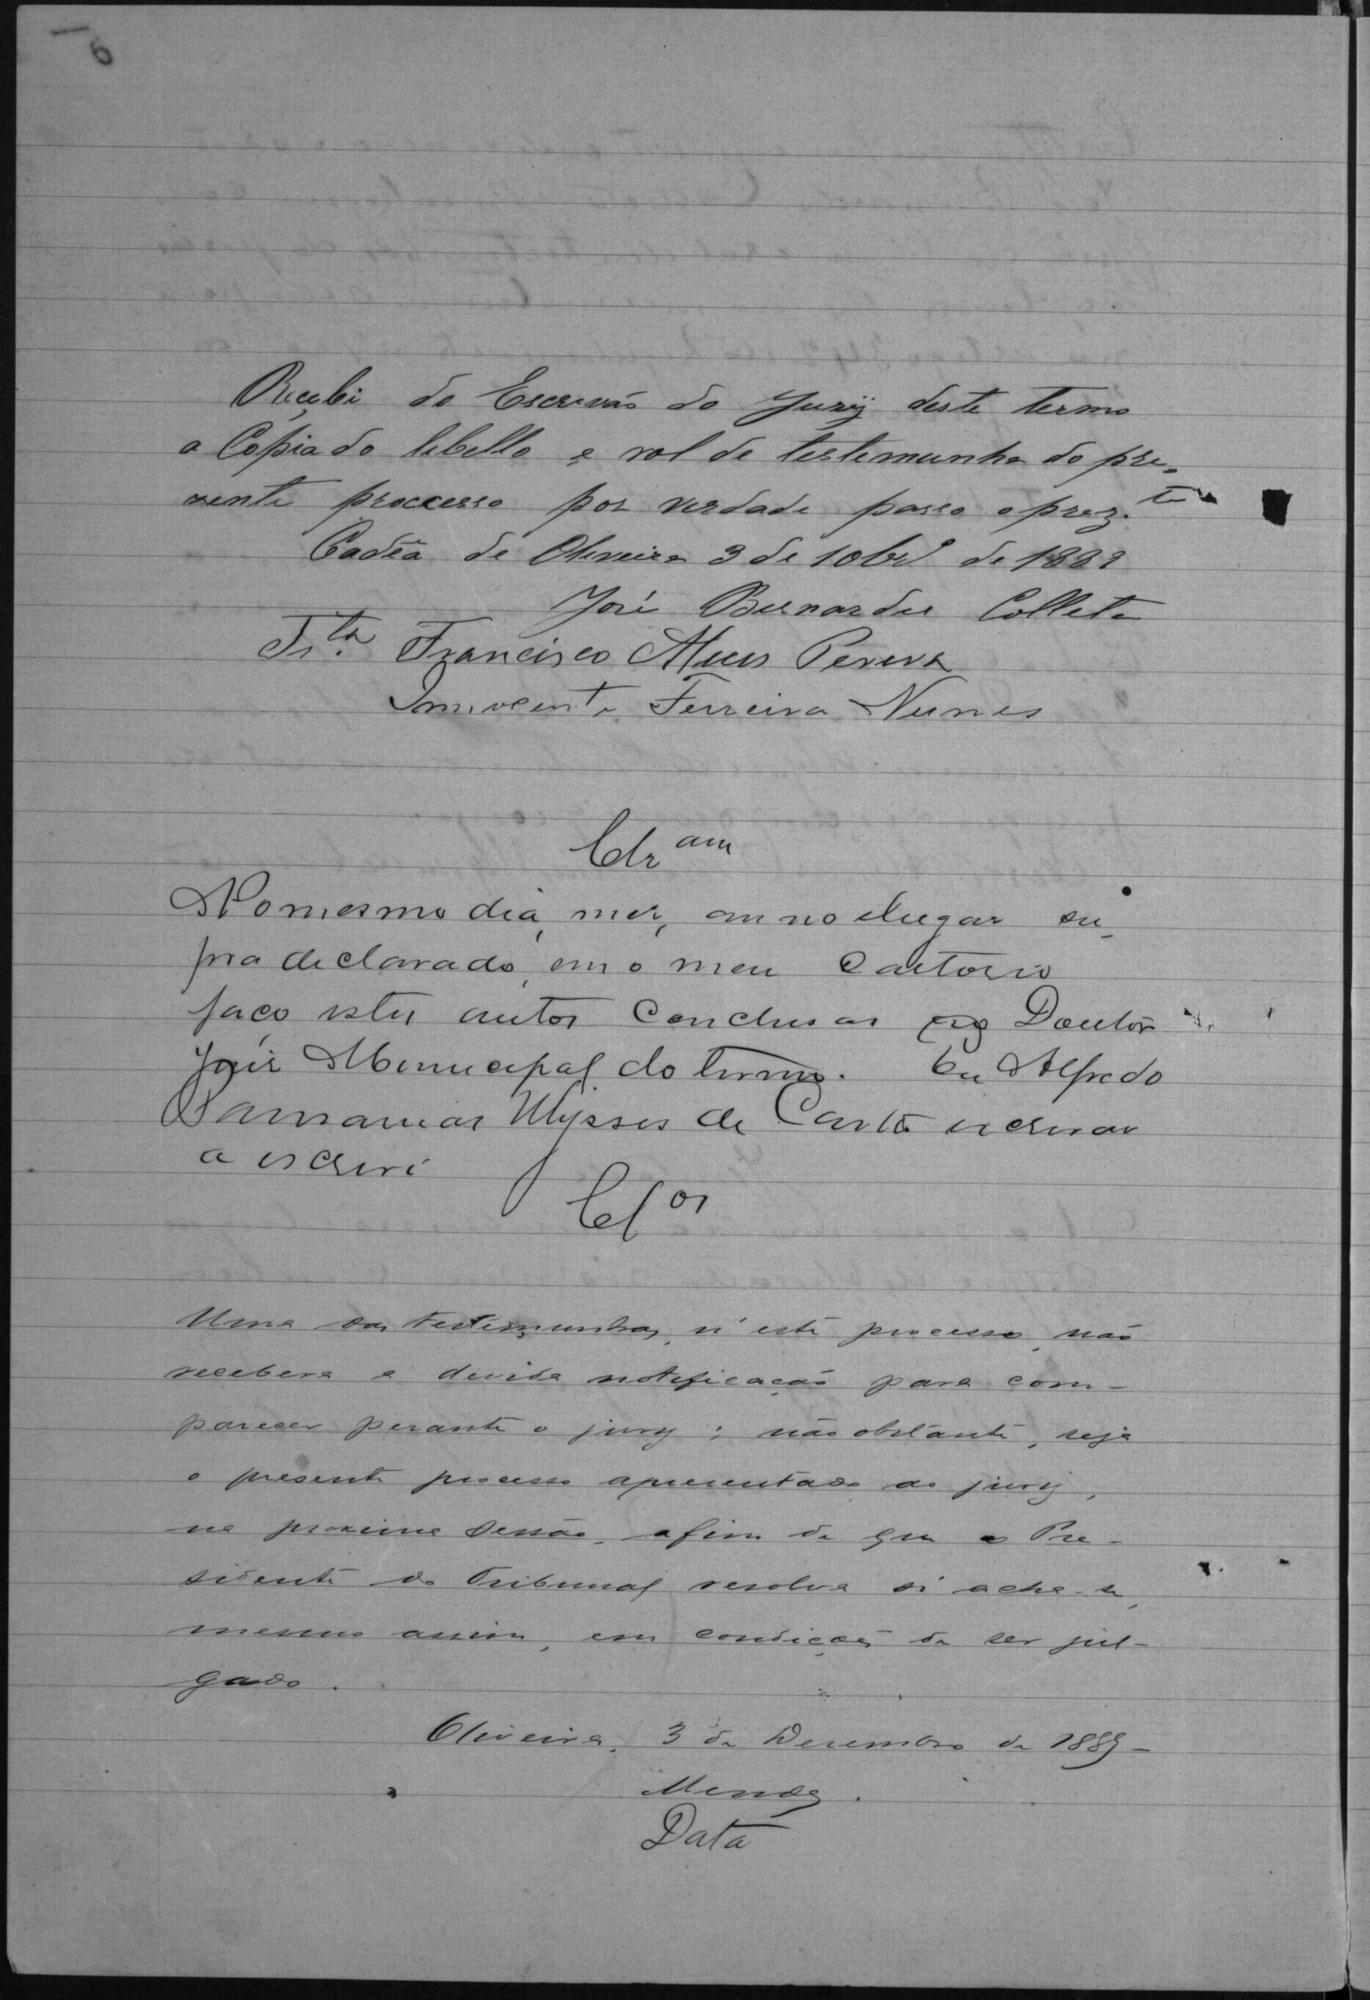 Recebi do Escrivão do Jury deste termo
a Copia do libello e rol de testemunha do pre-
zente processo por verdade passo o prez.te
Cadêa de Oliveira 3 de 10brº de 1889
José Bernardes Colleta
Tta. Francisco Alves Pereira
Innocente Ferreira Nunes
Clzam
No mesmo dia, mez, anno e lugar su-
pra declarado, em o meu Cartorio
faço estes autos Conclusos ao Doutor
Juiz Municipal do termo. Eu Alfredo
Ulysses de Castro escrivão
a escrevi
Clos
Uma das testemunhas, n'este processo, não
recebera a devida notificação para com-
parecer perante o jury; não obstante, seja
o presente processo apresentado ao jury,
na proxima sessão, afim de que o Pre-
sidente do Tribunal resolva si acha-se,
mesmo assim, em condições de ser jul-
gado.
Oliveira, 3 de Dezembro de 1889-
Data